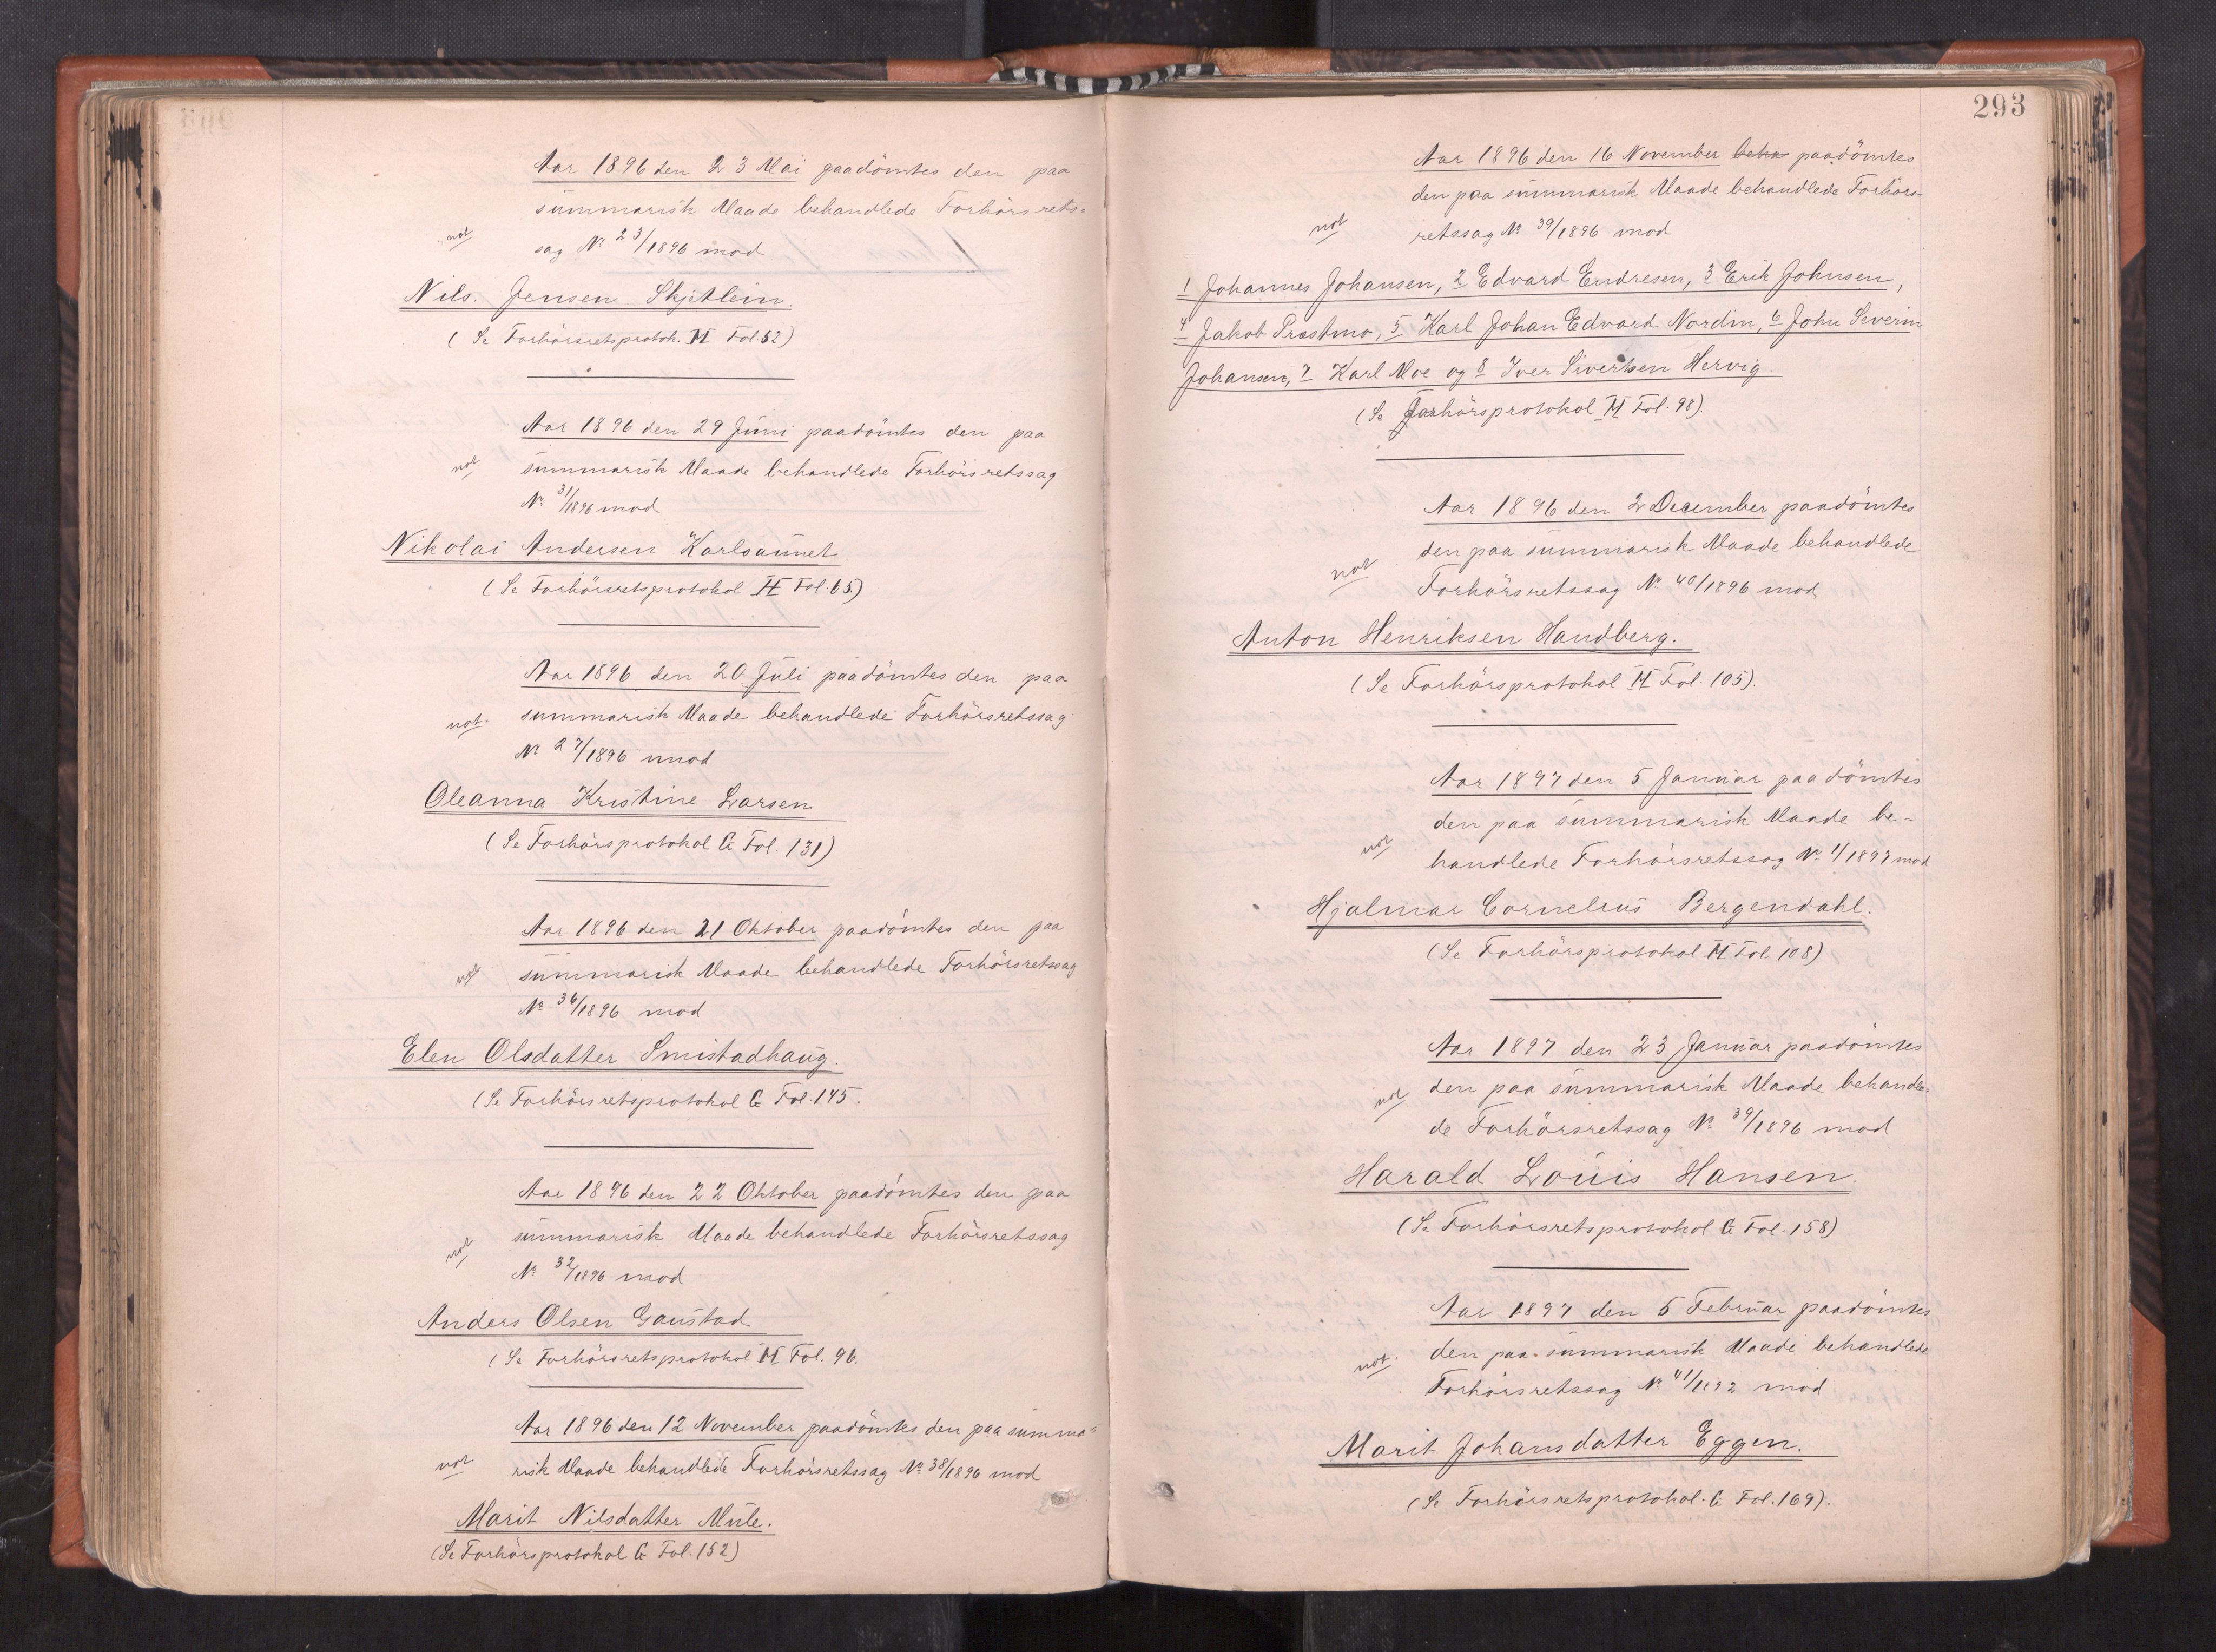 Aar 1896 den 23 Mai paadömtes den paa
summarisk Maade behandlede Forhörsrets-
not
sag No 23/1896 mod
Nils Jensen Skjetlein.
(Se Forhörsretsprotok. H Fol. 52)
Aar 1896 den 29 Juni paadömtes den paa
not
summarisk Maade behandlede Forhörsretssag
No 31/1896 mod
Nikolai Andersen Karlsaunet.
(Se Forhörsretsprotokol H Fol. 65)
Aar 1896 den 20 Juli paadömtes den paa
not.
summarisk Maade behandlede Forhörsretssag
No 27/1896 mod
Oleanna Kristine Larsen
(Se Forhörsprotokol G Fol. 131)
Aar 1896 den 21 Oktober paadömtes den paa
not
summarisk Maade behandlede Forhörsretssag
No 36/1896 mod
Elen Olsdatter Smistadhaug.
(Se Forhörsretsprotokol G Fol. 145.
Aar 1896 den 22 Oktober paadömtes den paa
not
summarisk Maade behandlede Forhörsretssag
No 32/1896 mod
Anders Olsen Gaustad
(Se Forhörsretsprotokol H Fol. 96.
Aar 1896 den 12 November paadömtes den paa summa-
not
risk Maade behandlede Forhörsretssag No 38/1896 mod
Marit Nilsdatter Mule.
(Se Forhörsprotokol G Fol. 152)
293
Aar 1896 den 16 November beha paadömtes
den paa summarisk Maade behandlede Forhörs-
not
retssag No 39/1896 mod
1 Johannes Johansen, 2 Edvard Endresen, 3 Erik Johnsen,
4 Jakob Præstmo, 5 Karl Johan Edvard Nordin, 6 John Severin
Johansen, 7 Karl Moe og 8 Iver Sivertsen Hervig.
(Se Forhörsprotokol H Fol. 98).
Aar 1896 den 2 December paadömtes
den paa summarisk Maade behandlede
not
Forhörsretssag No 40/1896 mod
Anton Henriksen Handberg.
(Se Forhörsprotokol H Fol. 105).
Aar 1897 den 5 Januar paadömtes
den paa summarisk Maade be-
not
handlede Forhörsretssag No 1/1897 mod
Hjalmar Cornelius Bergendahl.
(Se Forhörsprotokol H Fol. 108)
Aar 1897 den 23 Januar paadömtes
not
den paa summarisk Maade behandle-
de Forhörsretssag No 39/1896 mod
Harald Louis Hansen.
(Se Forhörsretsprotokol G Fol. 158)
Aar 1897 den 5 Februar paadömtes
not.
den paa summarisk Maade behandlede
Forhörsretssag No mod
Marit Johansdatter Eggen.
(Se Forhörsretsprotokol G Fol. 169).